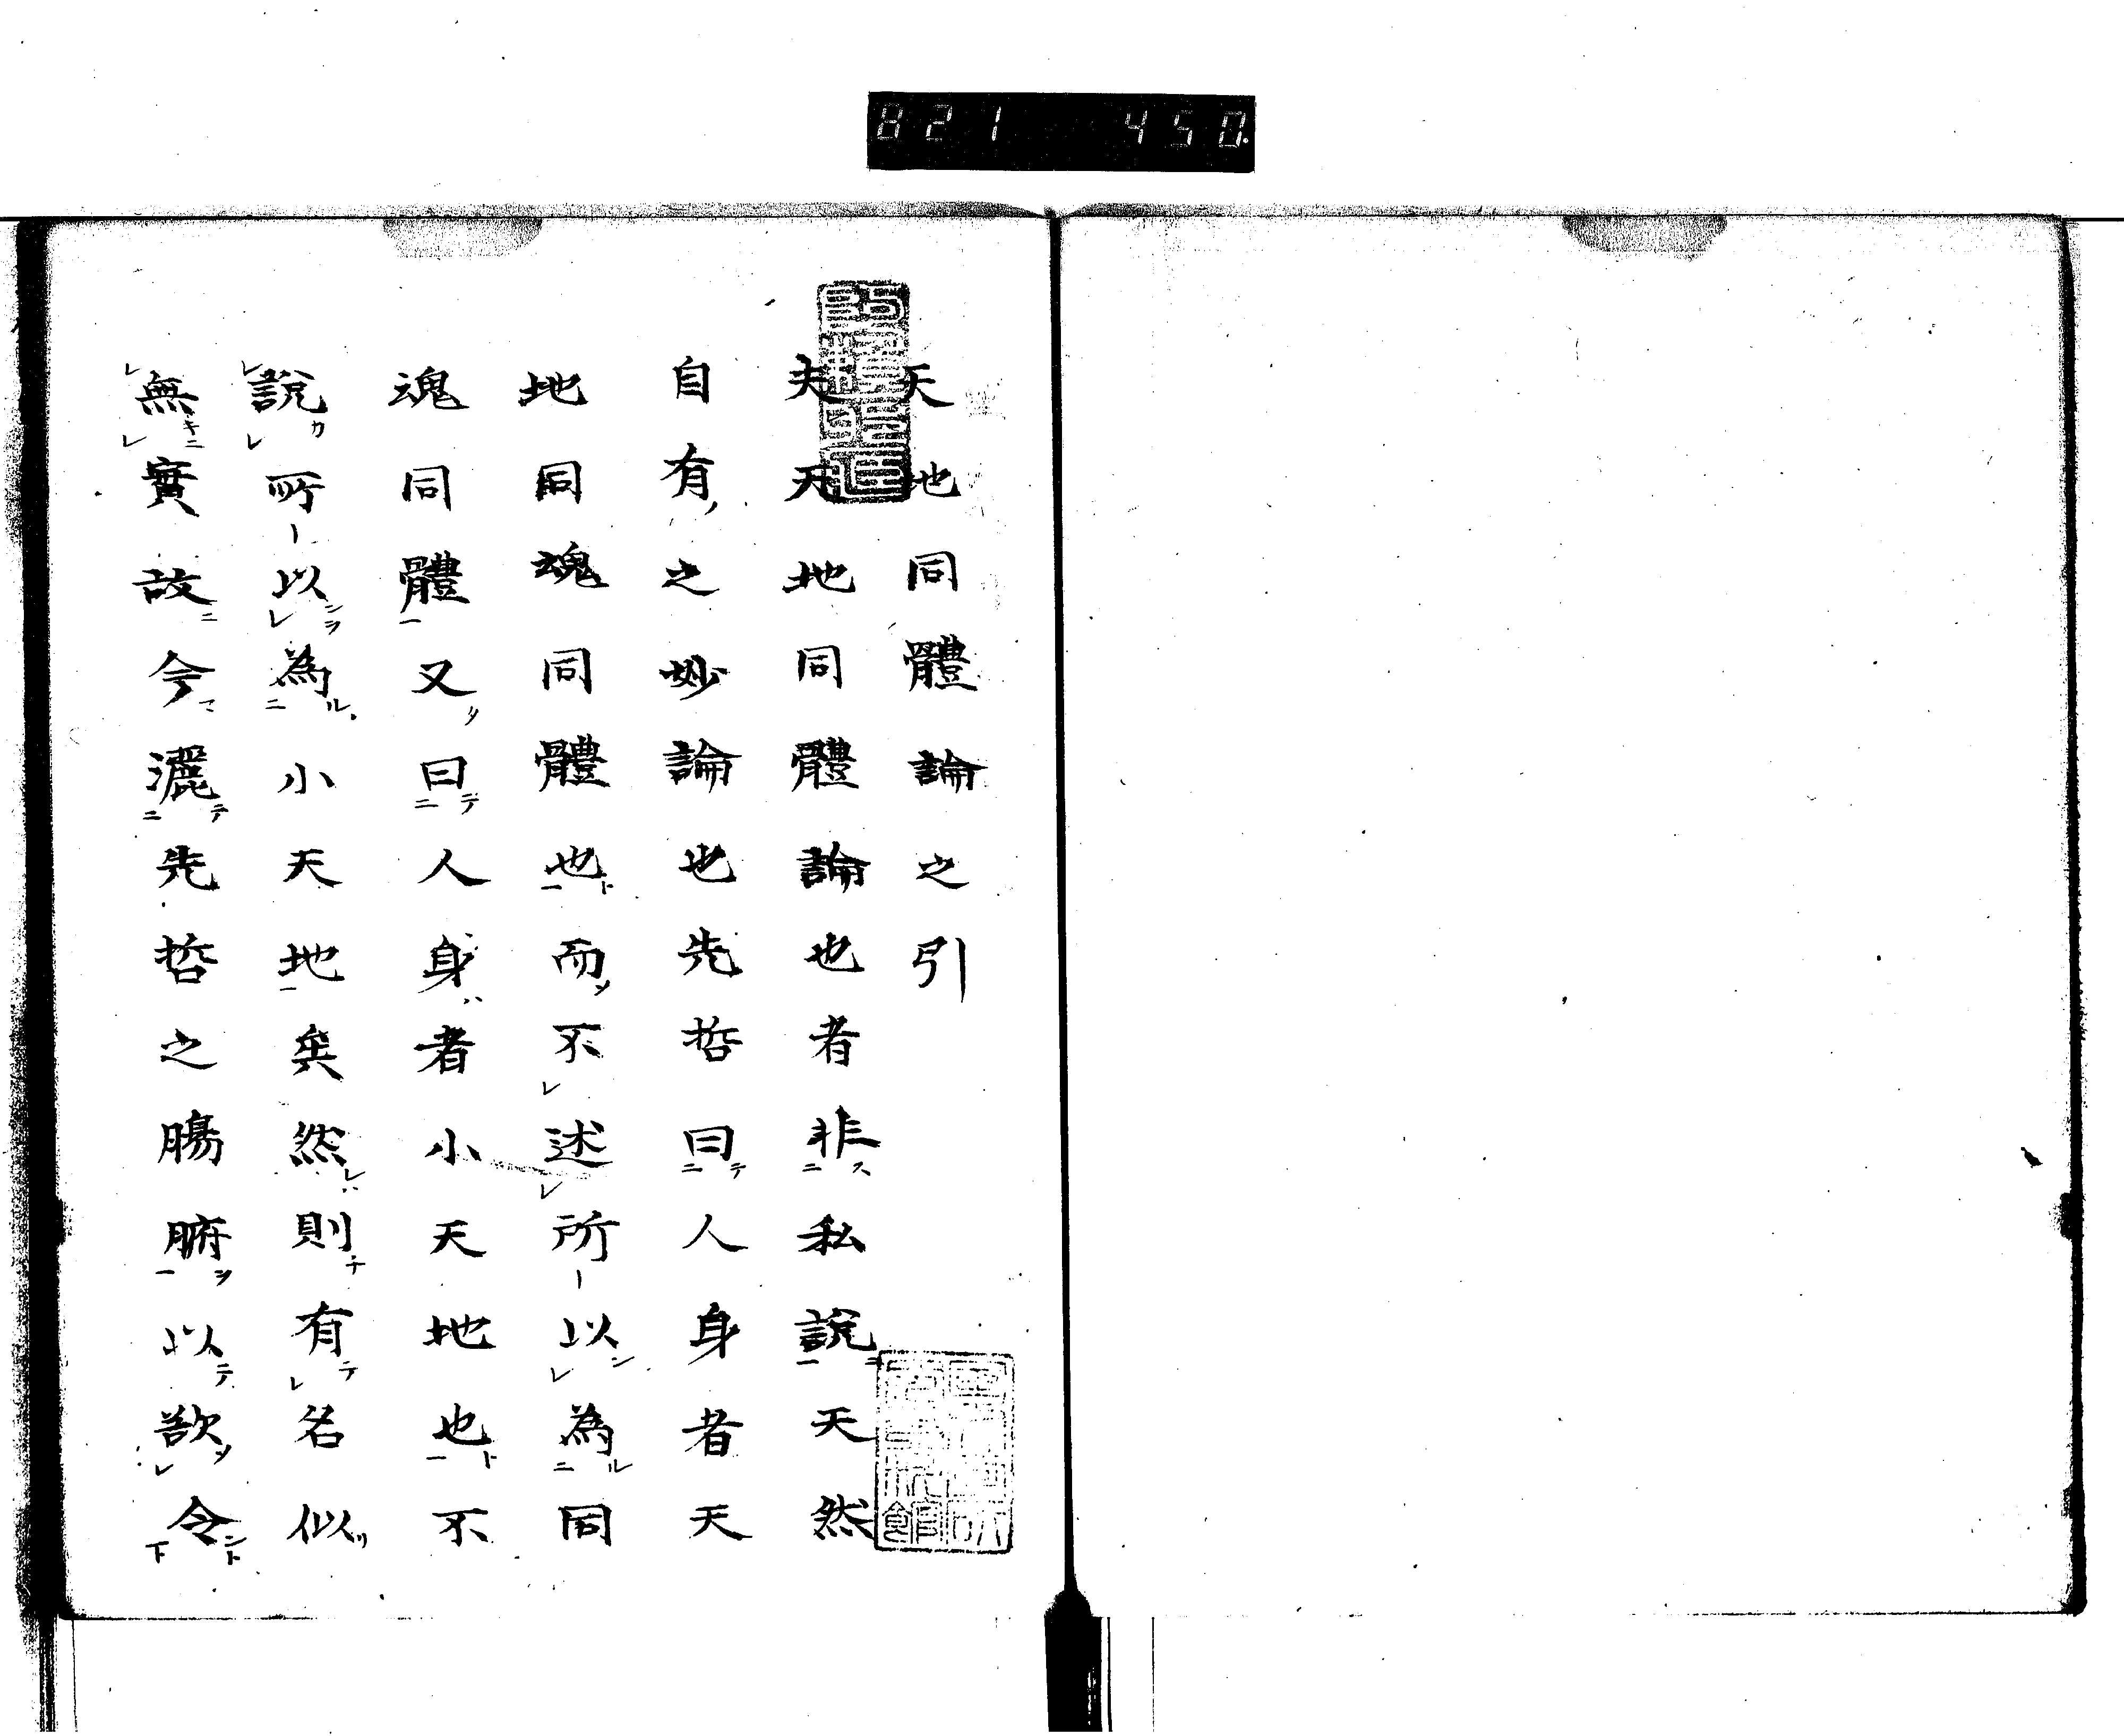 821 450.
天地同體論之引
夫天地同體論也者非私説天然
自有之妙論也先哲曰人身者天
地同魂同體也而不述所以為同
魂同體又曰人身者小天地也不
説所以為小天地矣然則有名似
無實故今灑先哲之腸腑以欲令